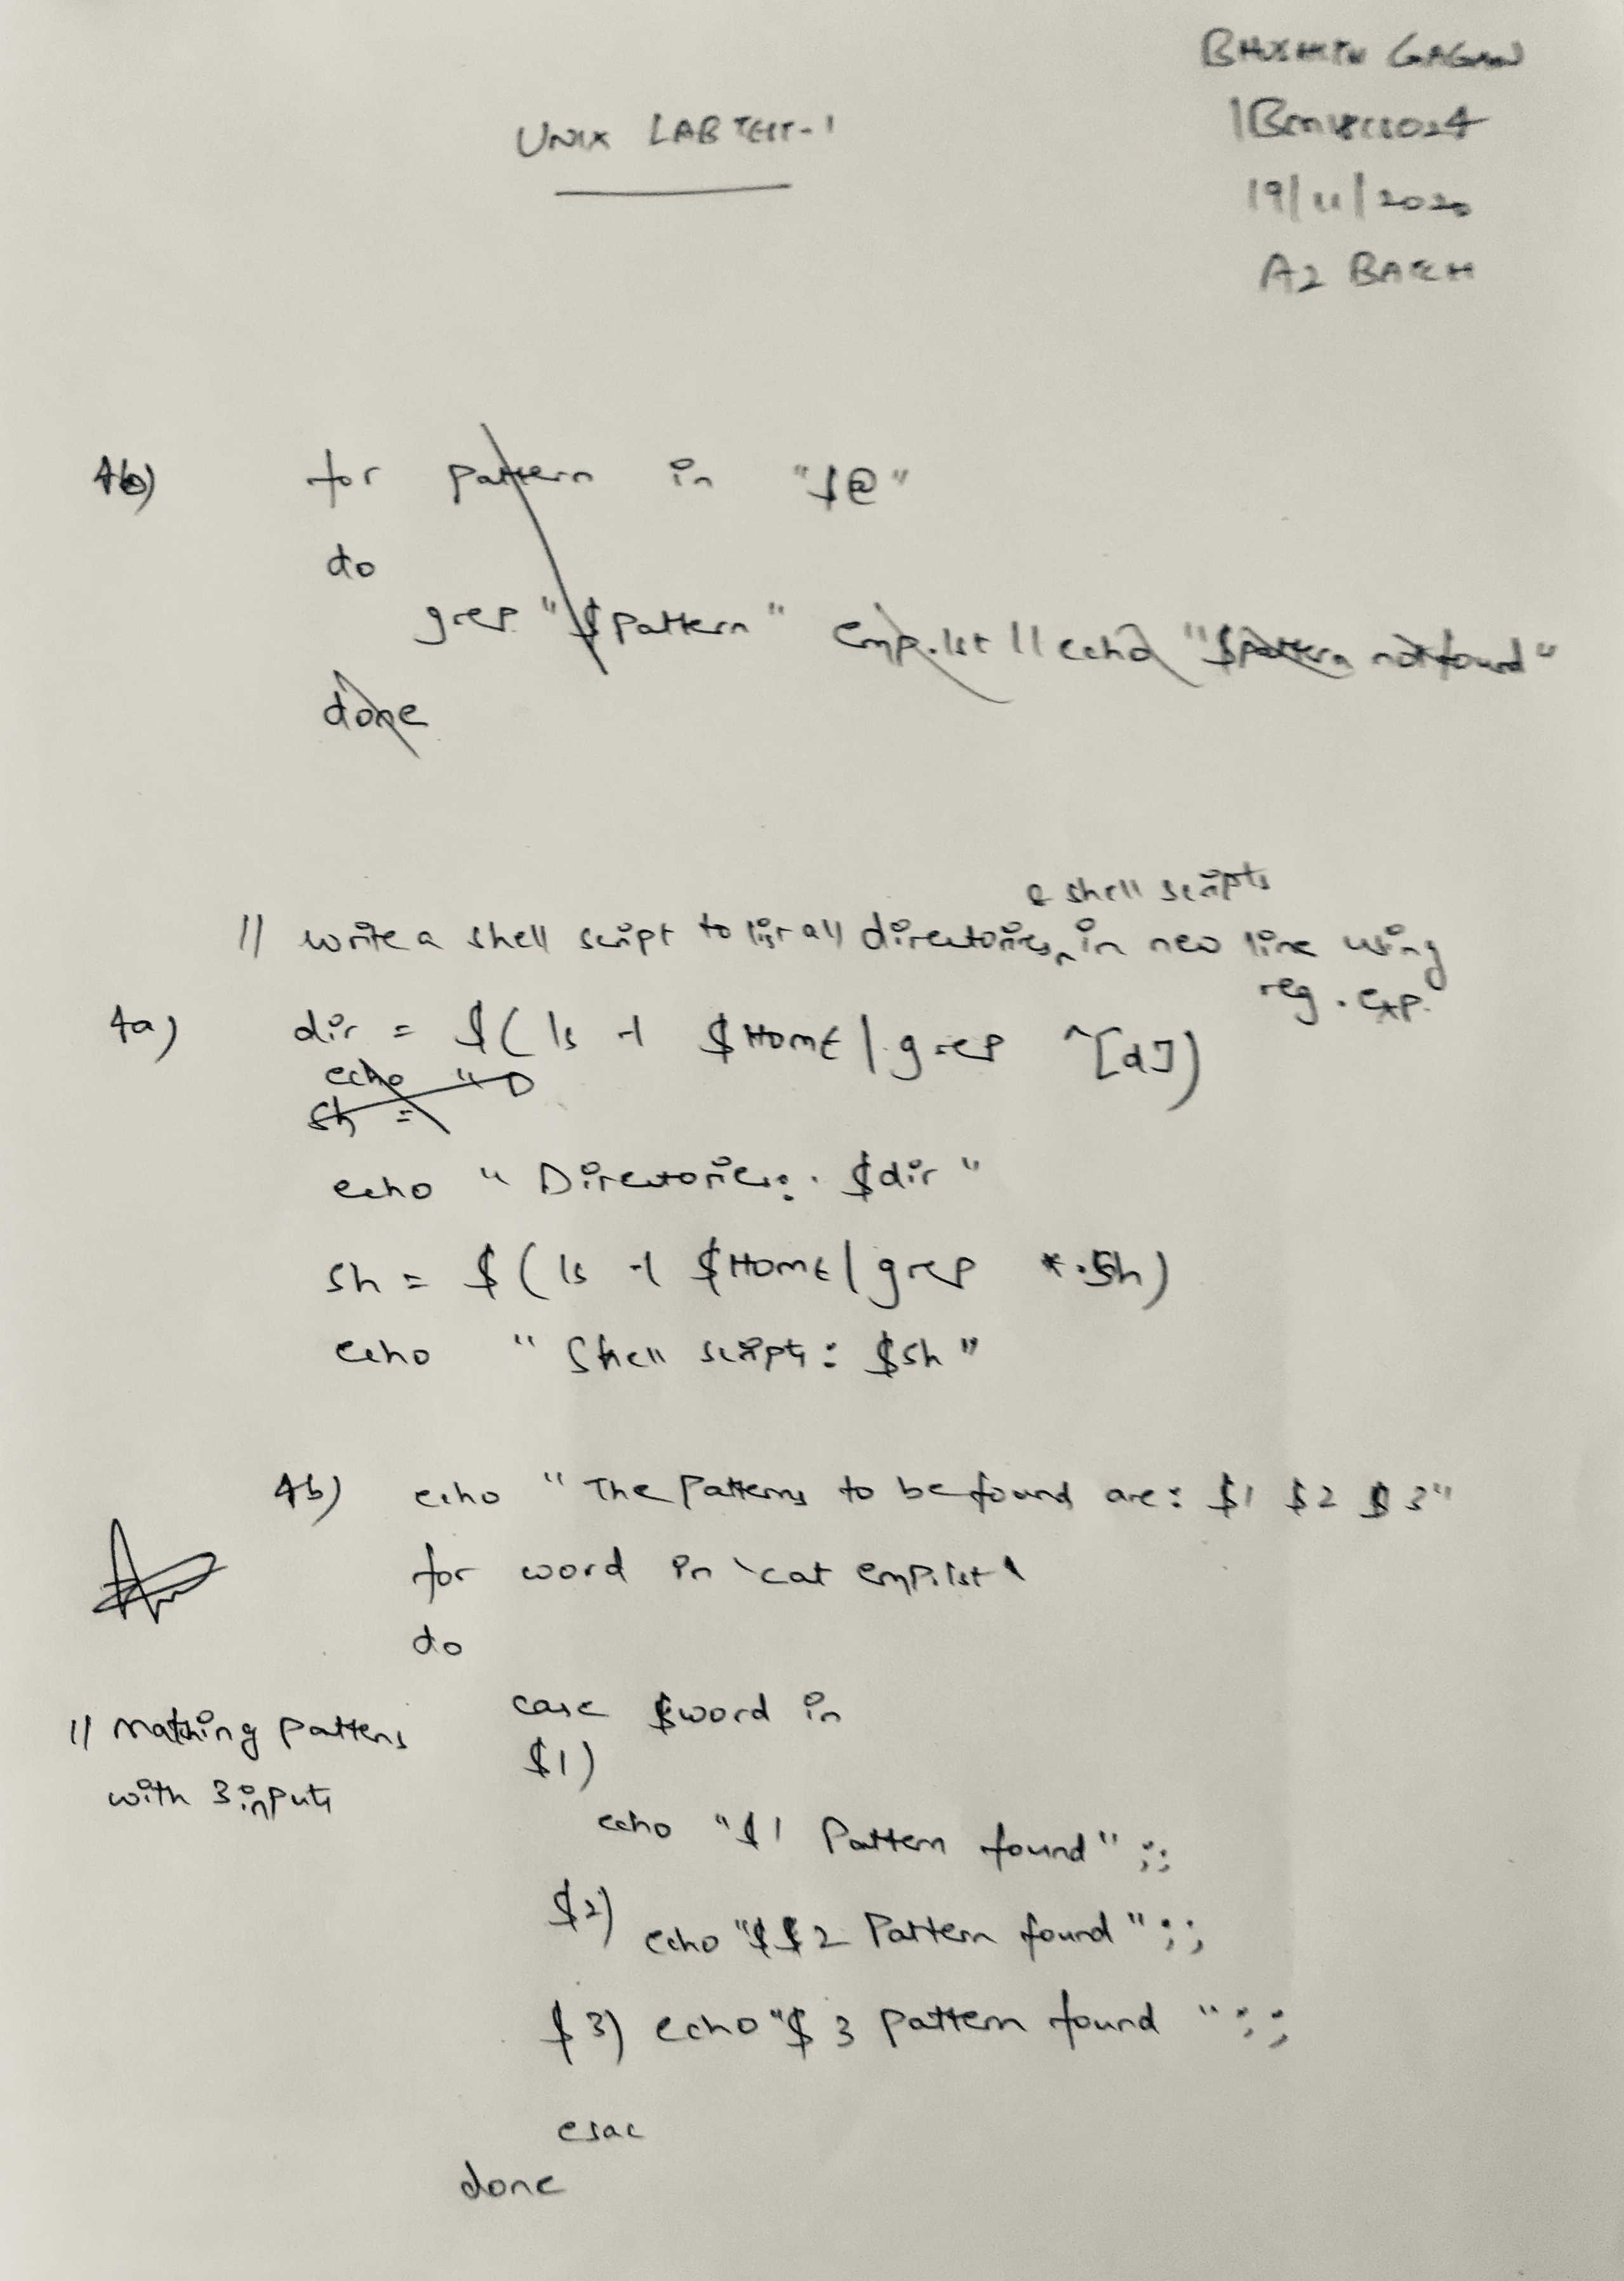 UNIX LAB TEST-1
GAGAN
19/11/2020
A2 BATCH
4b) for pattern in "$@"
do
grep "$pattern" emp.lst || echo "$pattern not found"
done
& shell scripts
// write a shell script to list all directories in new line using
reg. exp.
4a) dir = $( ls -l $HOME | grep ^[d])
echo "D
sh =
echo "Directories: $dir"
sh = $( ls -l $HOME | grep *.sh)
echo "Shell scripts: $sh"
4b) echo "The Patterns to be found are: $1 $2 $3"
for word in `cat emp.lst`
do
case $word in
// Matching pattens
$1)
with 3 inputs
echo "$1 Pattern found" ;;
$2)
echo "$$2 Pattern found" ;;
$3) echo "$3 pattern found " ;;
esac
done